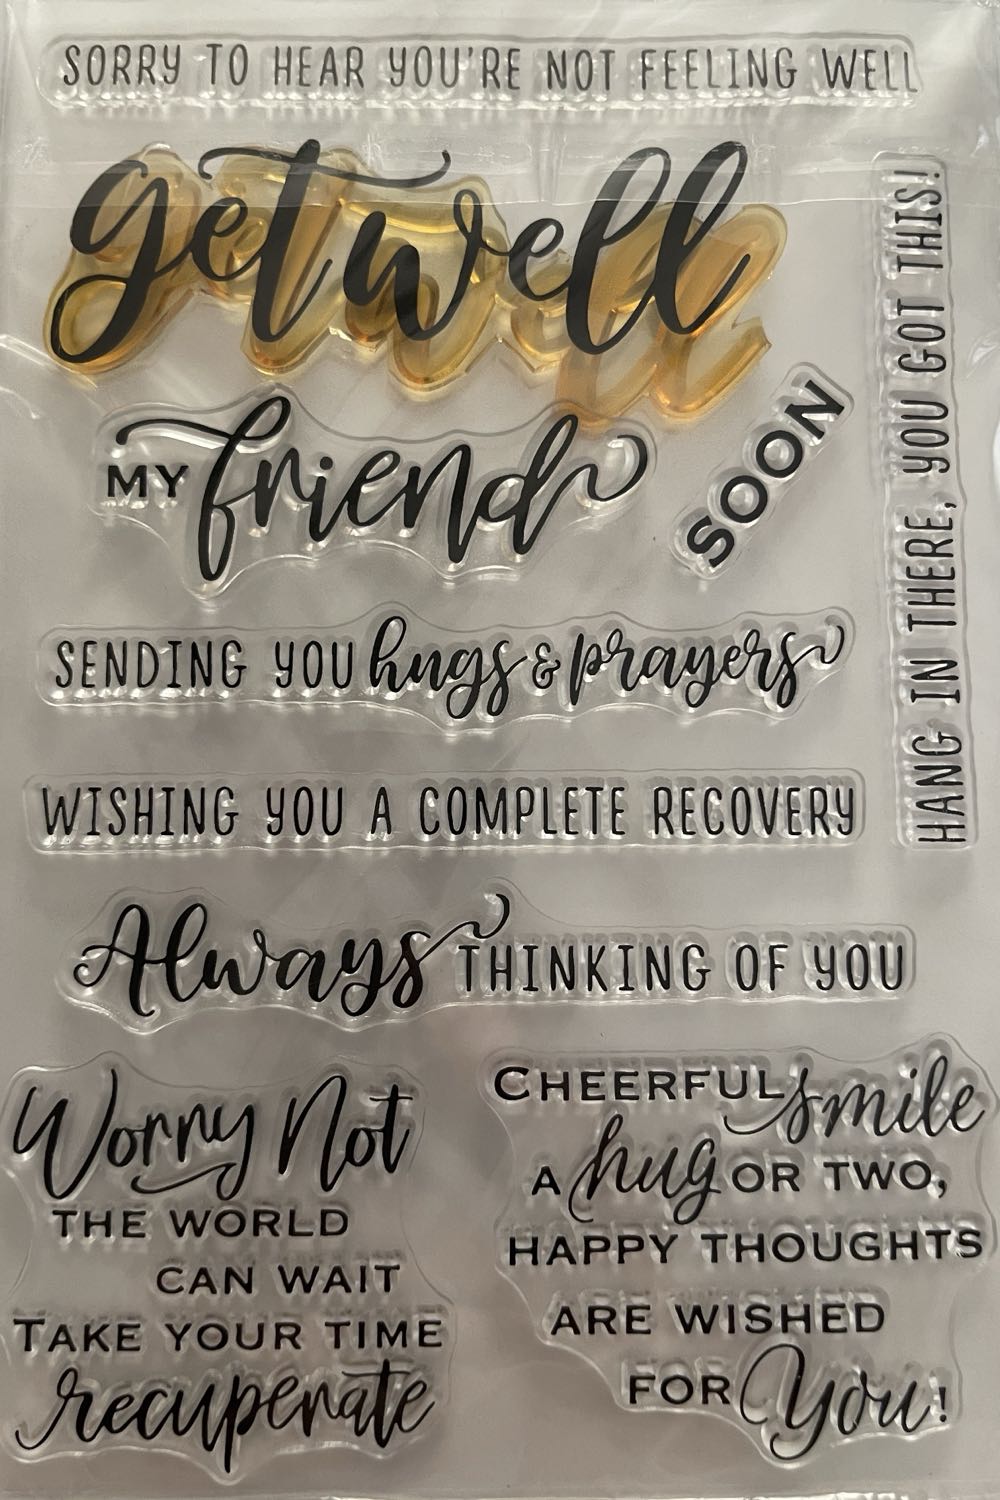 SORRY TO HEAR YOU'RE NOT FEELING WELL
get well
MY friend
SOON
HANG IN THERE, YOU GOT THIS!
SENDING YOU hugs & prayers
WISHING YOU A COMPLETE RECOVERY
Always THINKING OF YOU
Worry Not
THE WORLD
CAN WAIT
TAKE YOUR TIME
recuperate
CHEERFUL smile
A hug OR TWO,
HAPPY THOUGHTS
ARE WISHED
FOR You!